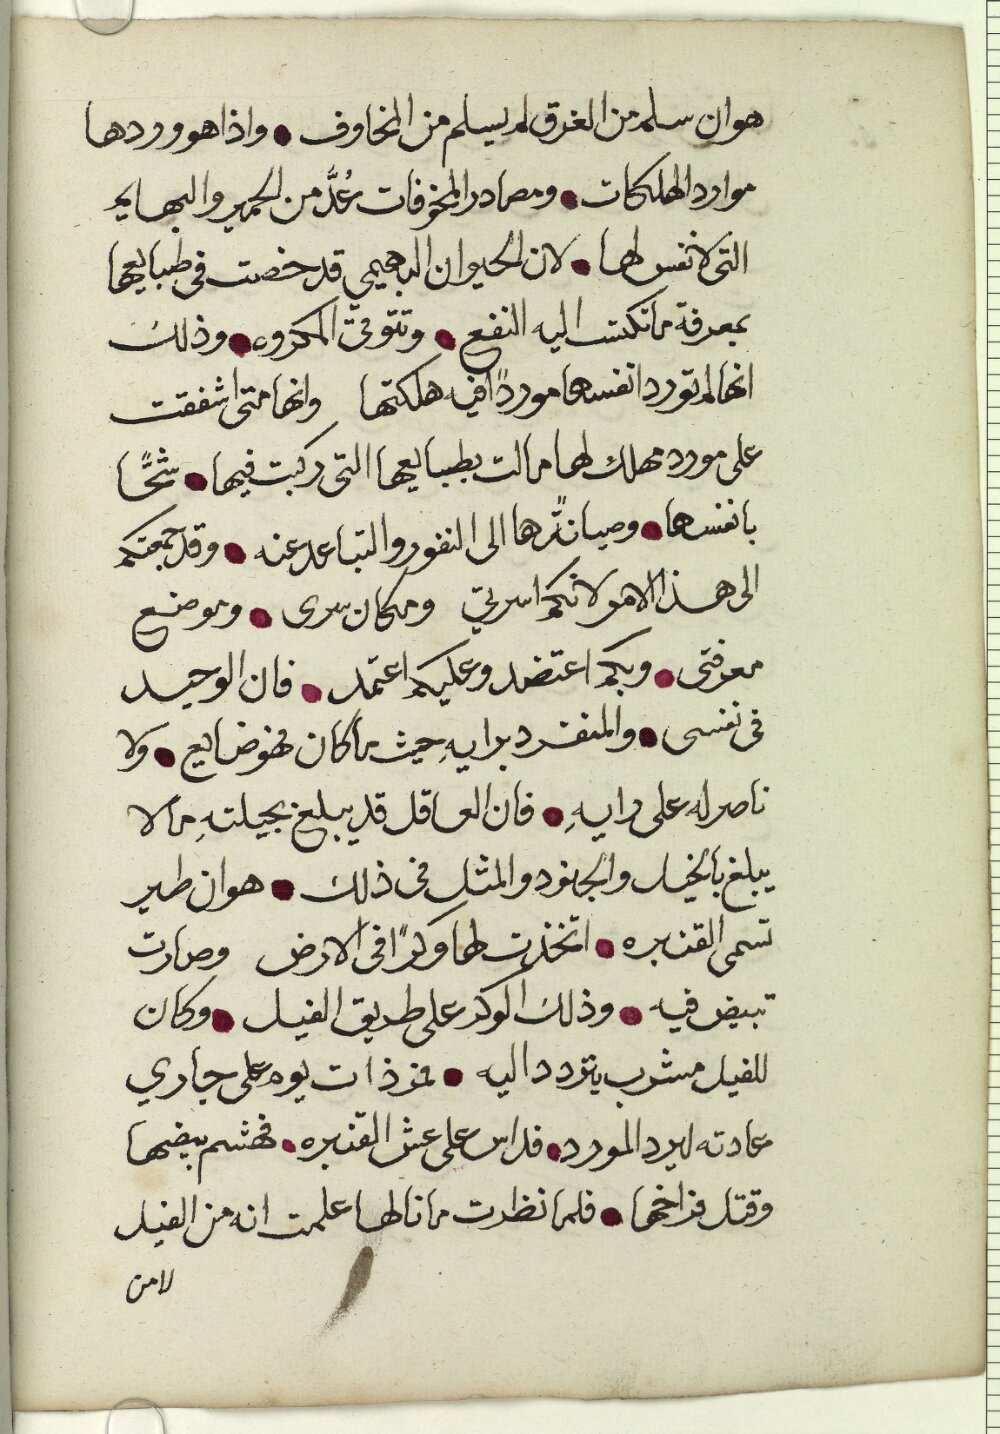 هو ان سلم من الغرق لم يسلم من المخاوف ● واذا هو وردها
موارد الهلكات ● ومصادر المخوفات عُدَّ من الحمير والبهايم
التى لا نفس لها ● لان الحيوان البهيمي قد خصت في طبايعها
بمعرفة ما تكتسب اليه النفع ● وتتوقى المكروه ● وذلك
انها لم تورد انفسها موردًا فيه هلكتها وانها متى اشفقت
على مورد مهلك لها مالت بطبايعها التى ركبت فيها ● شحًّا
بانفسها ● وصيانةً لها الى النفور والتباعد عنه ● وقد جمعتكم
الى هذا الامر لانكم اسرتي ومكان سرى ● وموضع
معرفتى ● وبكم اعتضد وعليكم اعتمد ● فان الوحيد
فى نفسى ● والمنفرد برايهِ حيث ما كان فهو ضايع ● ولا
ناصر له على رايهِ ● فان العاقل قد يبلغ بحيلتهِ ما لا
يبلغ بالخيل والجنود والمثل فى ذلك ● هو ان طير
تسمى القنبره ● اتخذت لها وكرًا فى الارض وصارت
تبيض فيه ● وذلك الوكر على طريق الفيل ● وكان
للفيل مشرب يتردد اليه ● فمر ذات يوم على جاري
عادته ليرد المورد ● فداس على عش القنبره ● فهشم بيضها
وقتل فراخها ● فلما نظرت ما نالها علمت انه من الفيل
لا من